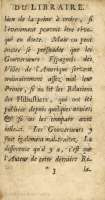 DU LIBRAIRE.
bien de la peine à croire, si
l'evenement pouvoit être revo-
qué en doute. Mais on peut
assez se persuader que les
Gouverneurs Espagnols des
Villes de l'Amerique feront
maintenant assez mal leur
Prince, si on lit les Relations
des Flibustiers, qui ont été
publiées depuis quelques années
& si on les compare avec
celle-ci. Les Gouverneurs y
sont également maltraitez. La
difference qu'il y a, c'est que
l'Auteur de cette derniere Re-
la-